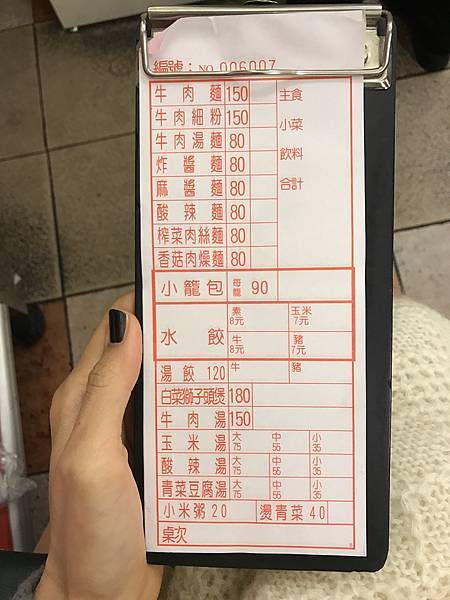 編號：NO 006007
牛肉麵 150 主食
牛肉細粉 150 小菜
牛肉湯麵 80 飲料
炸醬麵 80 合計
麻醬麵 80
酸辣麵 80
榨菜肉絲麵 80
香菇肉燥麵 80
小籠包 每籠 90
水餃 素 8元 玉米 7元
牛 8元 豬 7元
湯餃 120 牛 豬
白菜獅子頭煲 180
牛肉湯 150
玉米湯 大 75 中 55 小 35
酸辣湯 大 75 中 55 小 35
青菜豆腐湯 大 75 中 55 小 35
小米粥 20 燙青菜 40
桌次